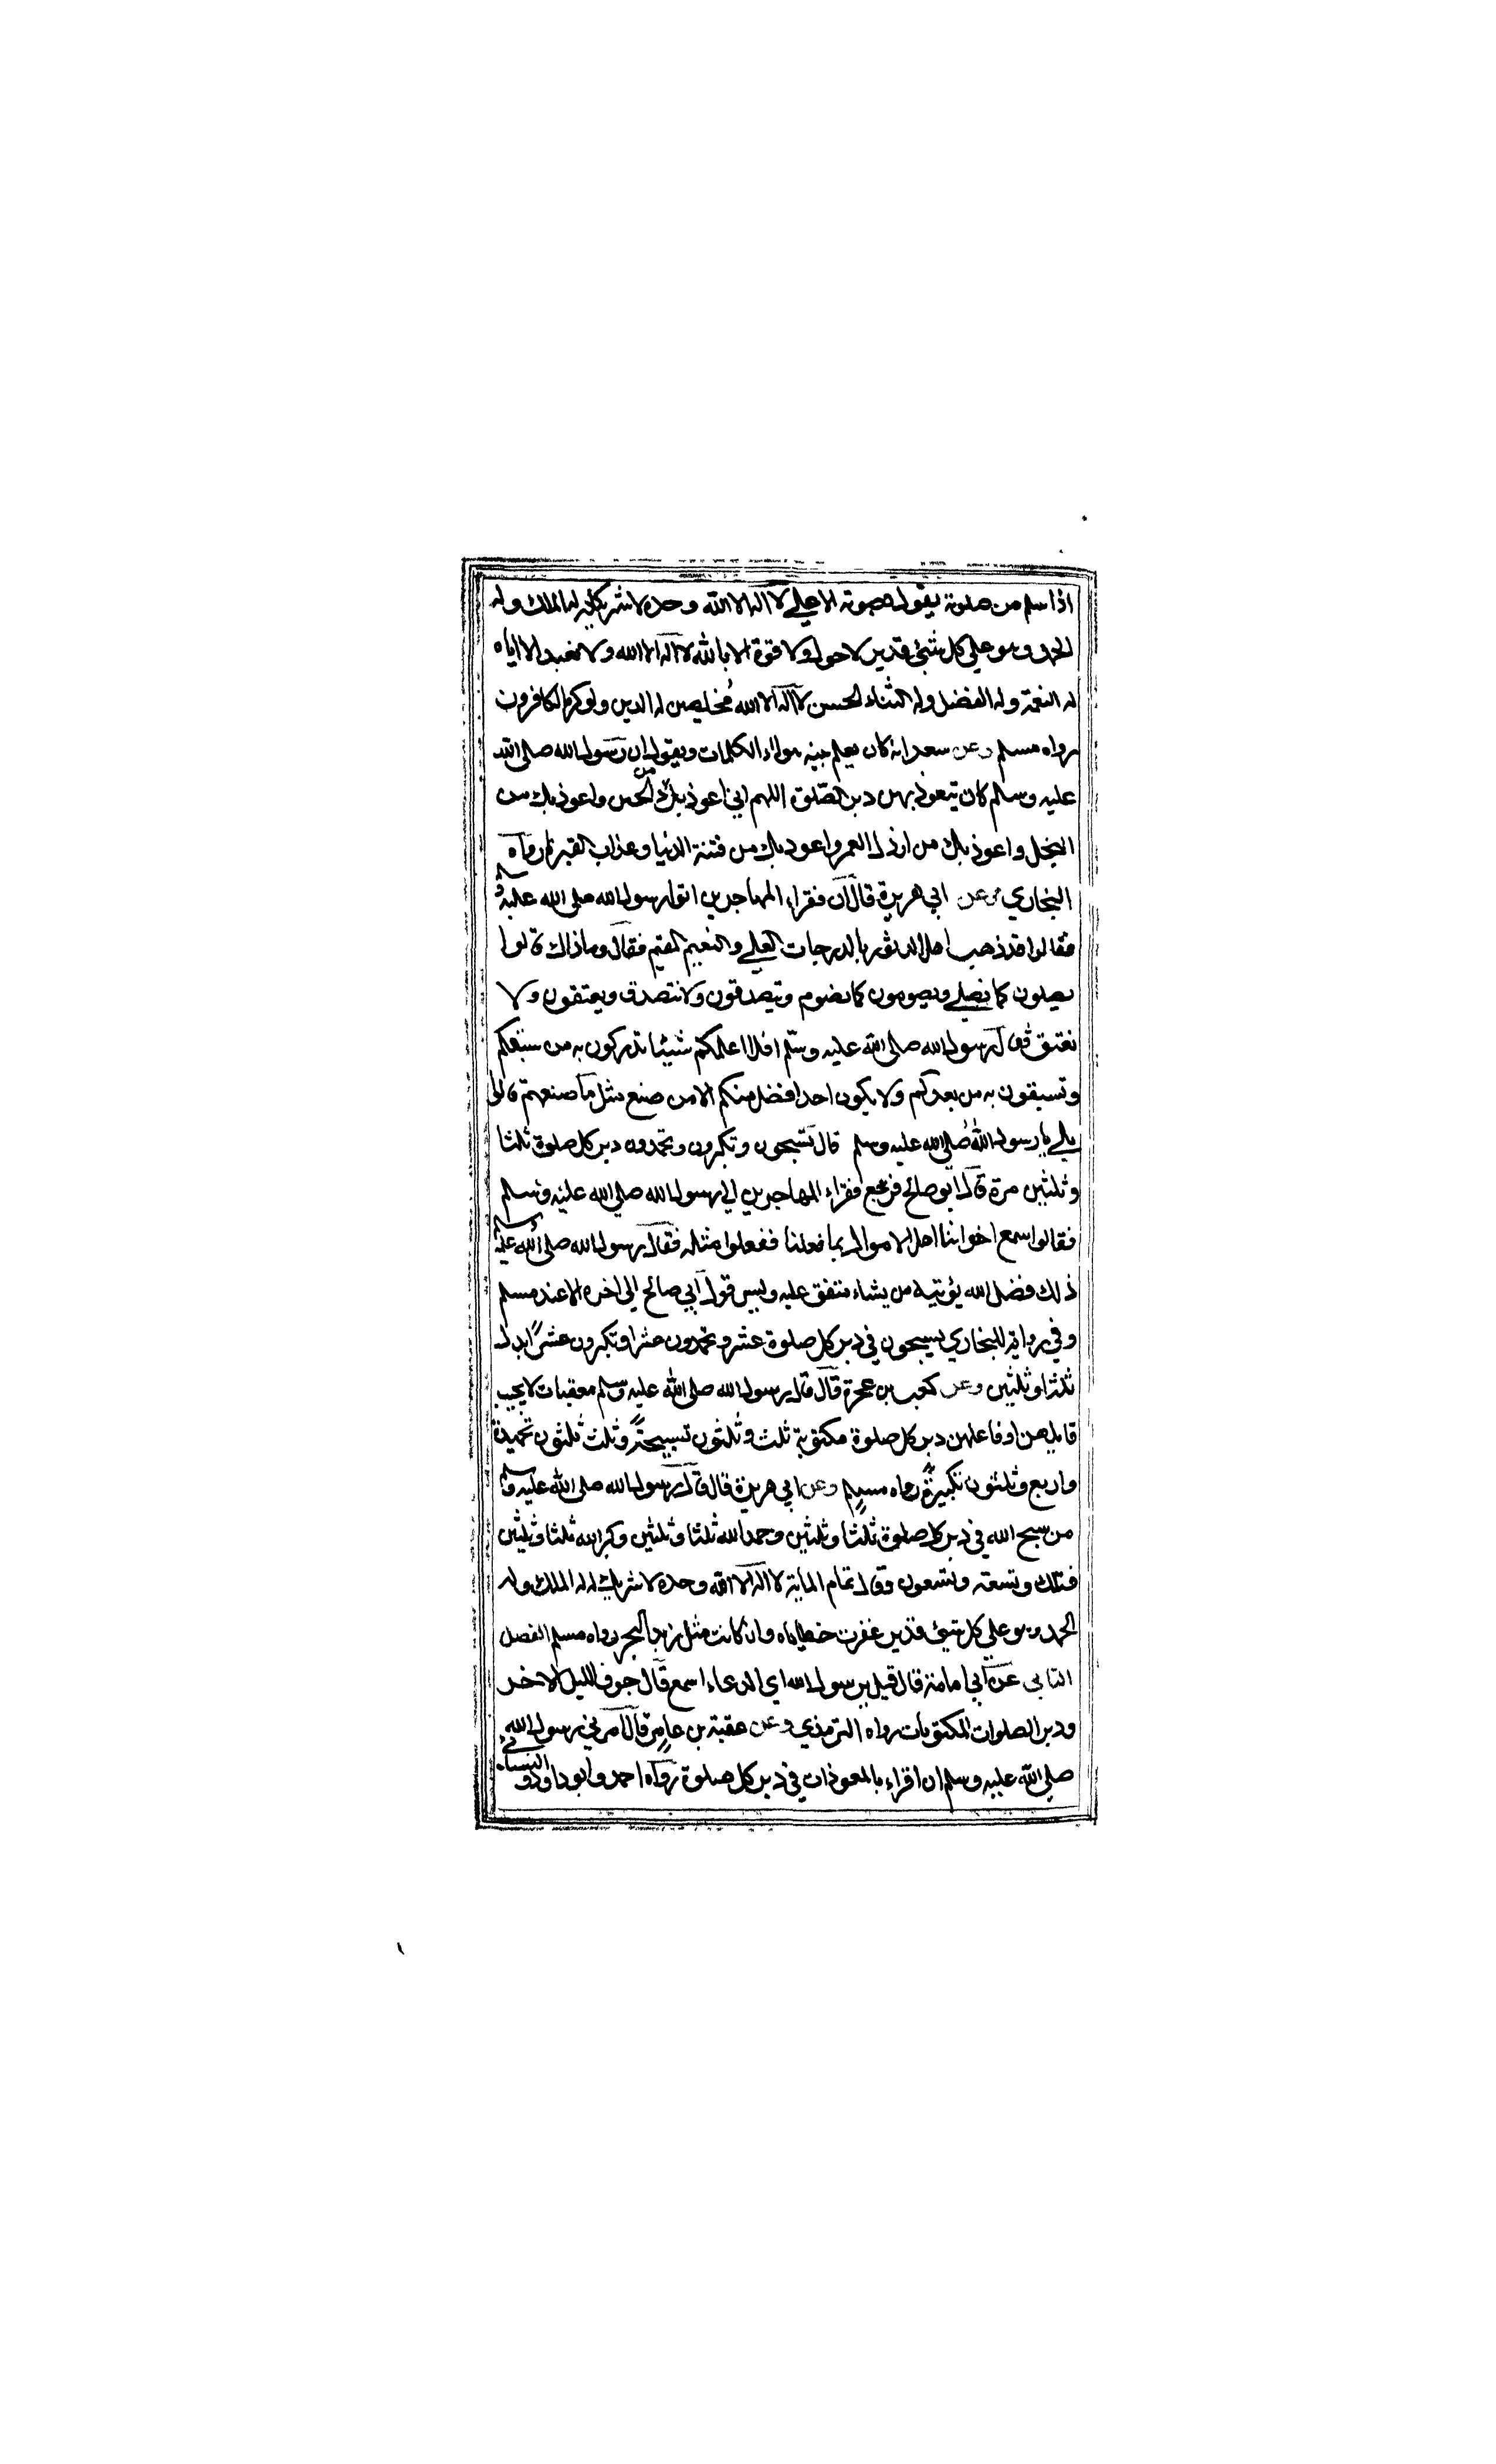 اذا سلم من صلوته يقول بصوته الاعلى لا اله الا الله وحده لا شريك له له الملك وله
الحمد وهو على كل شيئ قدير لا حول ولا قوة الا بالله لا اله الا الله ولا نعبد الا اياه
له النعمة وله الفضل وله الثناء الحسن لا اله الا الله مخلصين له الدين ولو كره الكافرون
رواه مسلم وعن سعد انه كان يعلم بنيه هولاء الكلمات ويقول ان رسول الله صلى الله
عليه وسلم كان يتعوذ بهن دبر الصلوة اللهم اني اعوذ بك من الجبن واعوذ بك من
البخل واعوذ بك من ارذل العمر واعوذ بك من فتنة الدنيا وعذاب القبر رواه
البخاري وعن ابي هريرة قال ان فقراء المهاجرين اتوا رسول الله صلى الله عليه وسلم
فقالوا قد ذهب اهل الدثور بالدرجات العلى والنعيم المقيم فقال وما ذاك قالوا
يصلون كما نصلي ويصومون كما نصوم ويتصدقون ولا نتصدق ويعتقون ولا
نعتق فقال رسول الله صلى الله عليه وسلم افلا اعلمكم شيئا تدركون به من سبقكم
وتسبقون به من بعدكم ولا يكون احد افضل منكم الا من صنع مثل ما صنعتم قالوا
بلى يا رسول الله صلى الله عليه وسلم قال تسبحون وتكبرون وتحمدون دبر كل صلوة ثلثا
وثلثين مرة قال ابو صالح فرجع فقراء المهاجرين الى رسول الله صلى الله عليه وسلم
فقالوا سمع اخواننا اهل الاموال بما فعلنا ففعلوا مثله فقال رسول الله صلى الله عليه وسلم
ذلك فضل الله يؤتيه من يشاء متفق عليه وليس قول ابي صالح الى اخره الا عند مسلم
وفي رواية للبخاري يسبحون في دبر كل صلوة عشرو تحمدون عشرا وتكبرون عشرًا بدل
ثلثا وثلثين وعن كعب بن عجرة قال قال رسول الله صلى الله عليه وسلم معقبات لا يخيب
قايلهن او فاعلهن دبر كل صلوة مكتوبة ثلث وثلثون تسبيحة وثلث ثلثون تحميدة
واربع وثلثون تكبيرة رواه مسلم وعن ابي هريرة قال قال رسول الله صلى الله عليه وسلم
من سبح الله في دبر كل صلوة ثلثا وثلثين وحمد الله ثلثا وثلثين وكبر الله ثلثا وثلثين
فتلك وتسعة وتسعون وقال تمام الماية لا اله الا الله وحده لا شريك له له الملك وله
الحمد وهو على كل شيئ قدير غفرت خطاياه وان كانت مثل زبد البحر رواه مسلم الفصل
الثاني عن ابي امامة قال قيل يرسول الله اي الدعاء اسمع قال جوف الليل الاخر
ودبر الصلوات المكتوبات رواه الترمذي وعن عقبة بن عامر قال امرني رسول الله
صلى الله عليه وسلم ان اقراء بالمعوذات في دبر كل صلوة رواه احمد وابو داود والنسائي